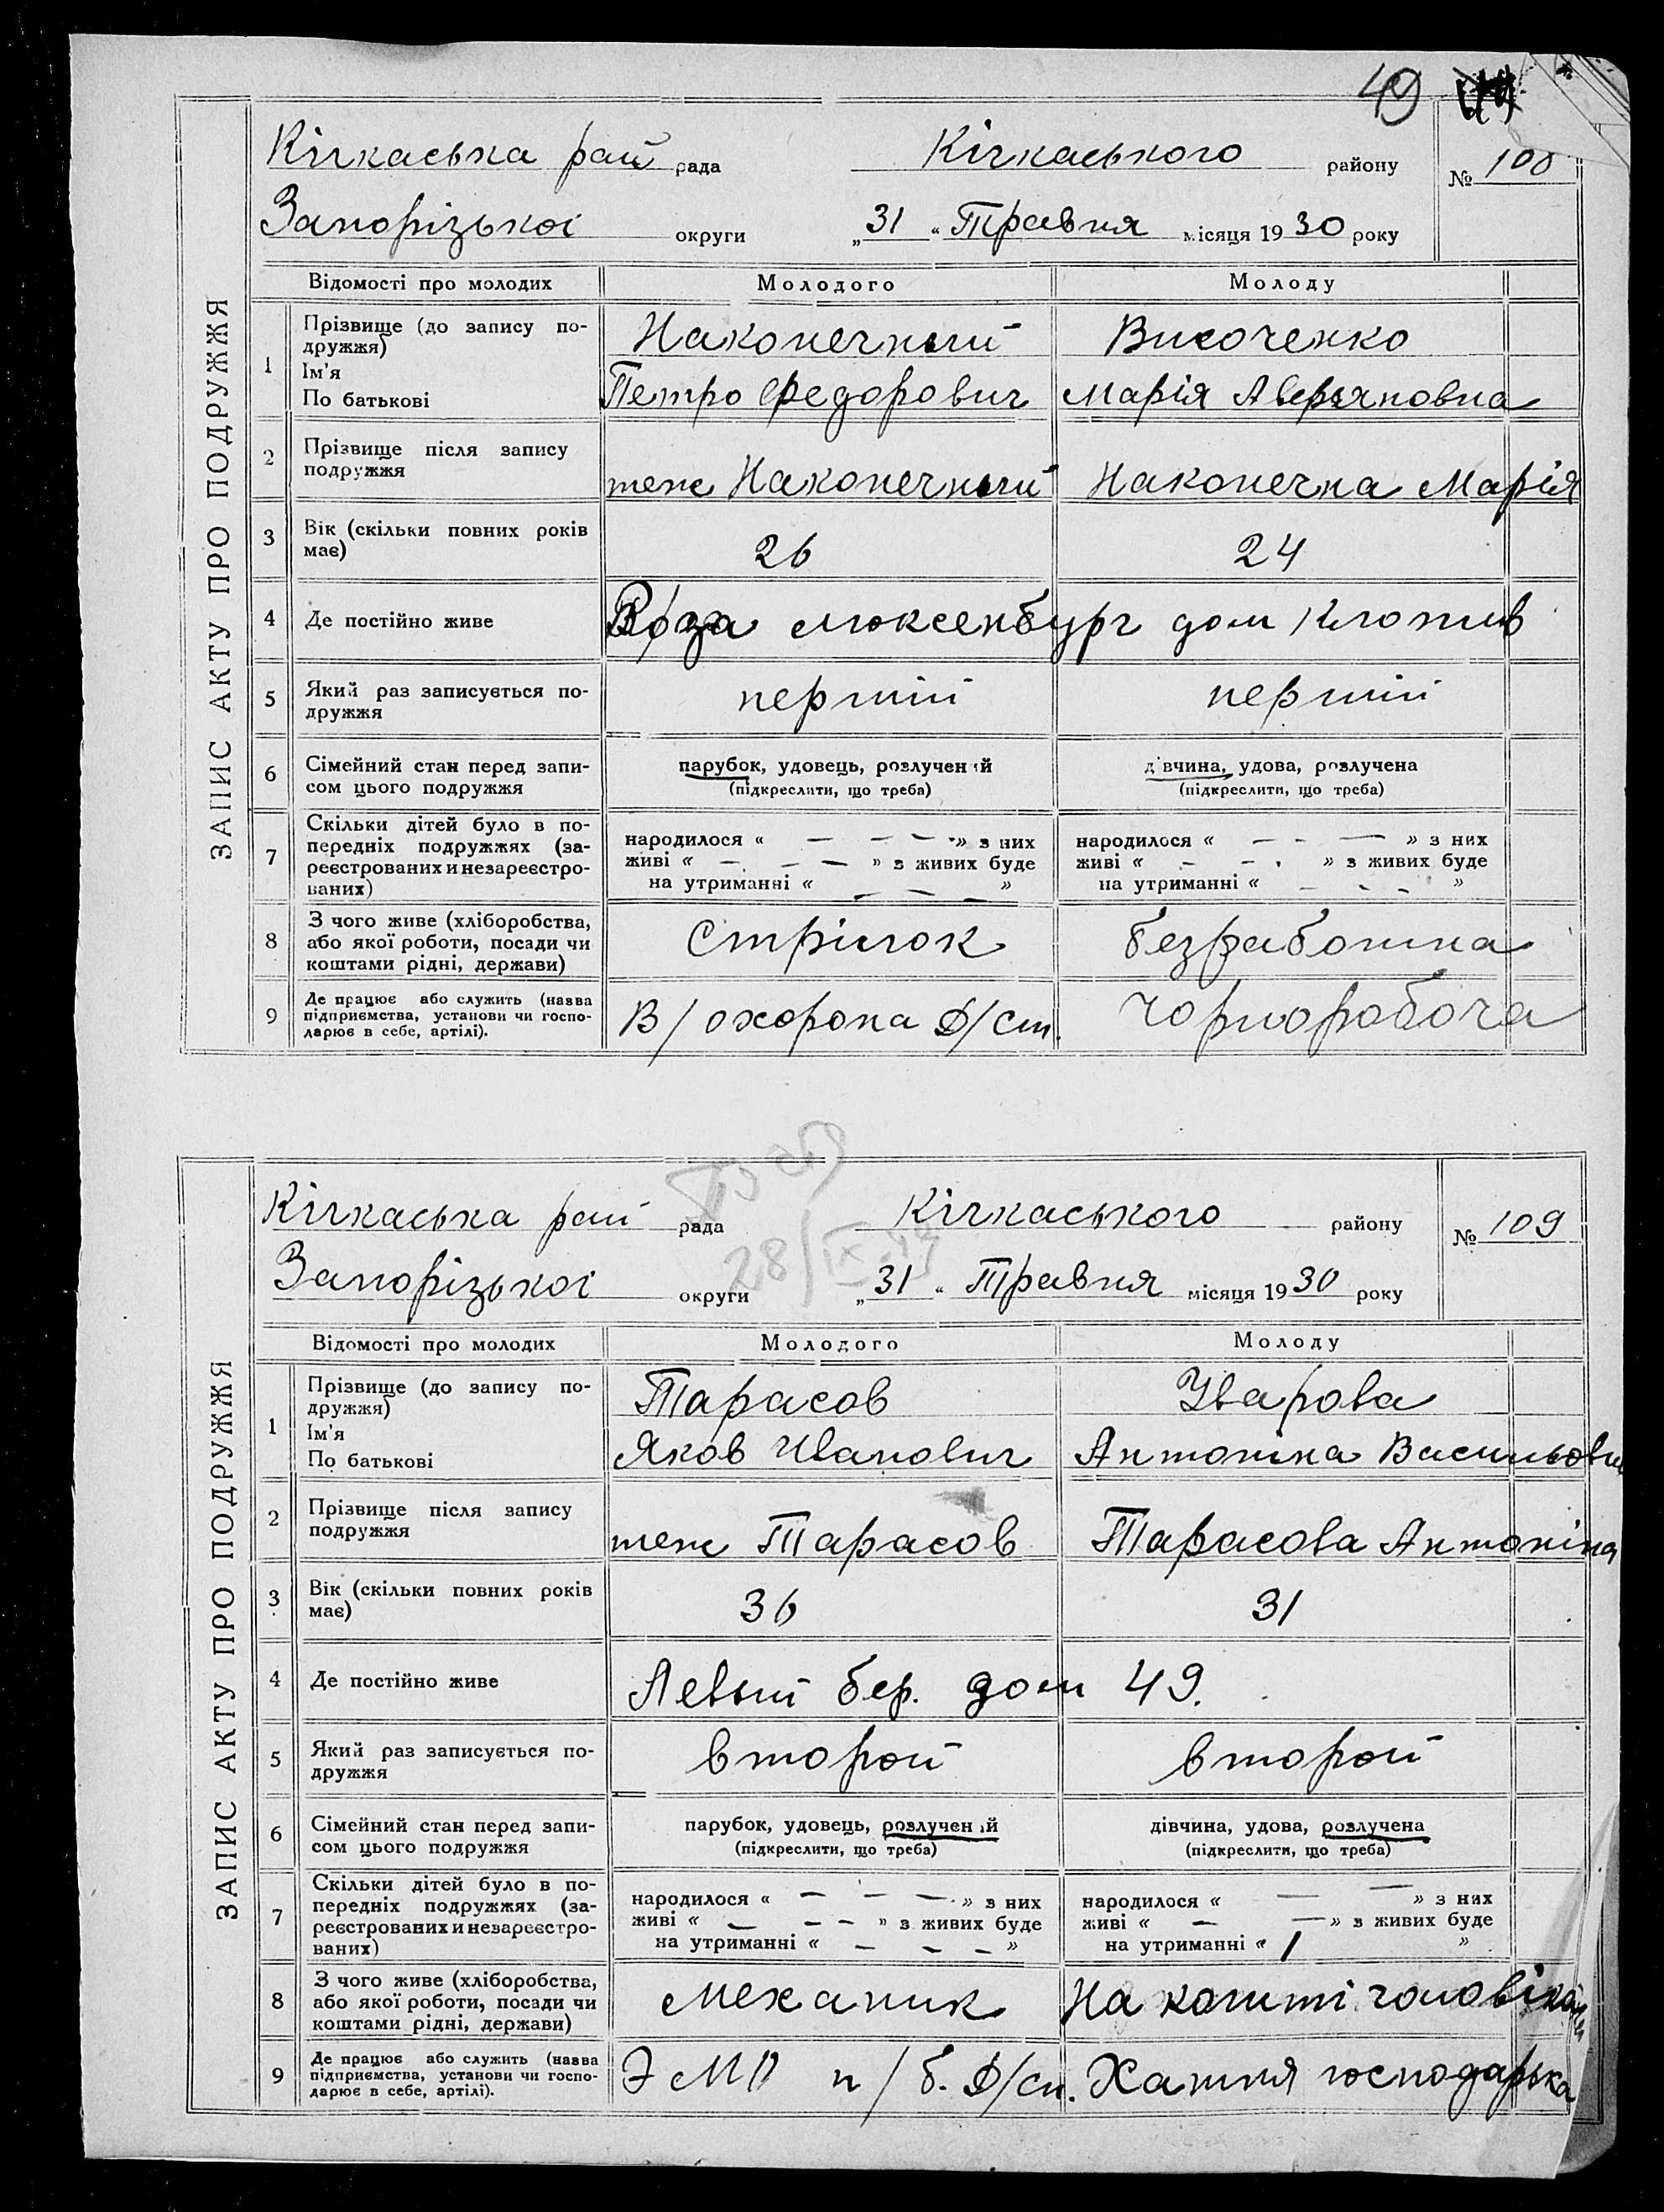 49
ЗАПИС АКТУ ПРО ПОДРУЖЖЯ
Кічкаська рай рада Кічкаського району № 108
Запорізькоі округи „31“ Травня місяця 1930 року
Відомості про молодих Молодого Молоду
1 Прізвище (до запису по-
дружжя) Наконечный Височенко
Ім'я
По батькові Петро Федорович Марія Аверьяновна
2 Прізвище після запису
подружжя теж Наконечный Наконечна Марія
3 Вік (скільки повних років
має) 26 24
4 Де постійно живе Роза люксенбург дом
5 Який раз записується по-
дружжя перший перший
6 Сімейний стан перед запи-
сом цього подружжя
парубок, удовець, розлучений дівчина, удова, розлучена
(підкреслити, що треба) (підкреслити, що треба)
7 Скільки дітей було в по-
передніх подружжях (за-
реєстрованих и незареєстро-
ваних)
народилося « — — — » з них народилося « — - — » з них
живі « — — — » з живих буде живі « — — » з живих буде
на утриманні « — — — » на утриманні « — — — »
8 З чого живе (хліборобства,
або якої роботи, посади чи
коштами рідні, держави)
Стрілок безработна
9 Де працює або служить (назва
підприємства, установи чи госпо-
дарює в себе, артілі).
В/охорона Д/ст. Чорноробоча
28/IX
ЗАПИС АКТУ ПРО ПОДРУЖЖЯ
Кічкаська рай рада Кічкаського району № 109
Запорізькоі округи „31“ Травня місяця 1930 року
Відомості про молодих Молодого Молоду
1 Прізвище (до запису по-
дружжя) Тарасов Уварова
Ім'я
По батькові Яков Иванович Антоніна
2 Прізвище після запису
подружжя теж Тарасов Тарасова Антоніна
3 Вік (скільки повних років
має) 36 31
4 Де постійно живе Левый бер. дом 49.
5 Який раз записується по-
дружжя второй второй
6 Сімейний стан перед запи-
сом цього подружжя
парубок, удовець, розлучений дівчина, удова, розлучена
(підкреслити, що треба) (підкреслити, що треба)
7 Скільки дітей було в по-
передніх подружжях (за-
реєстрованих и незареєстро-
ваних)
народилося « — — — » з них народилося « — — » з них
живі « — — — » з живих буде живі « — — » з живих буде
на утриманні « — — — » на утриманні « 1 »
8 З чого живе (хліборобства,
або якої роботи, посади чи
коштами рідні, держави)
Механик На кошти
9 Де працює або служить (назва
підприємства, установи чи госпо-
дарює в себе, артілі).
п/б. Д/сп. Хатня господарька